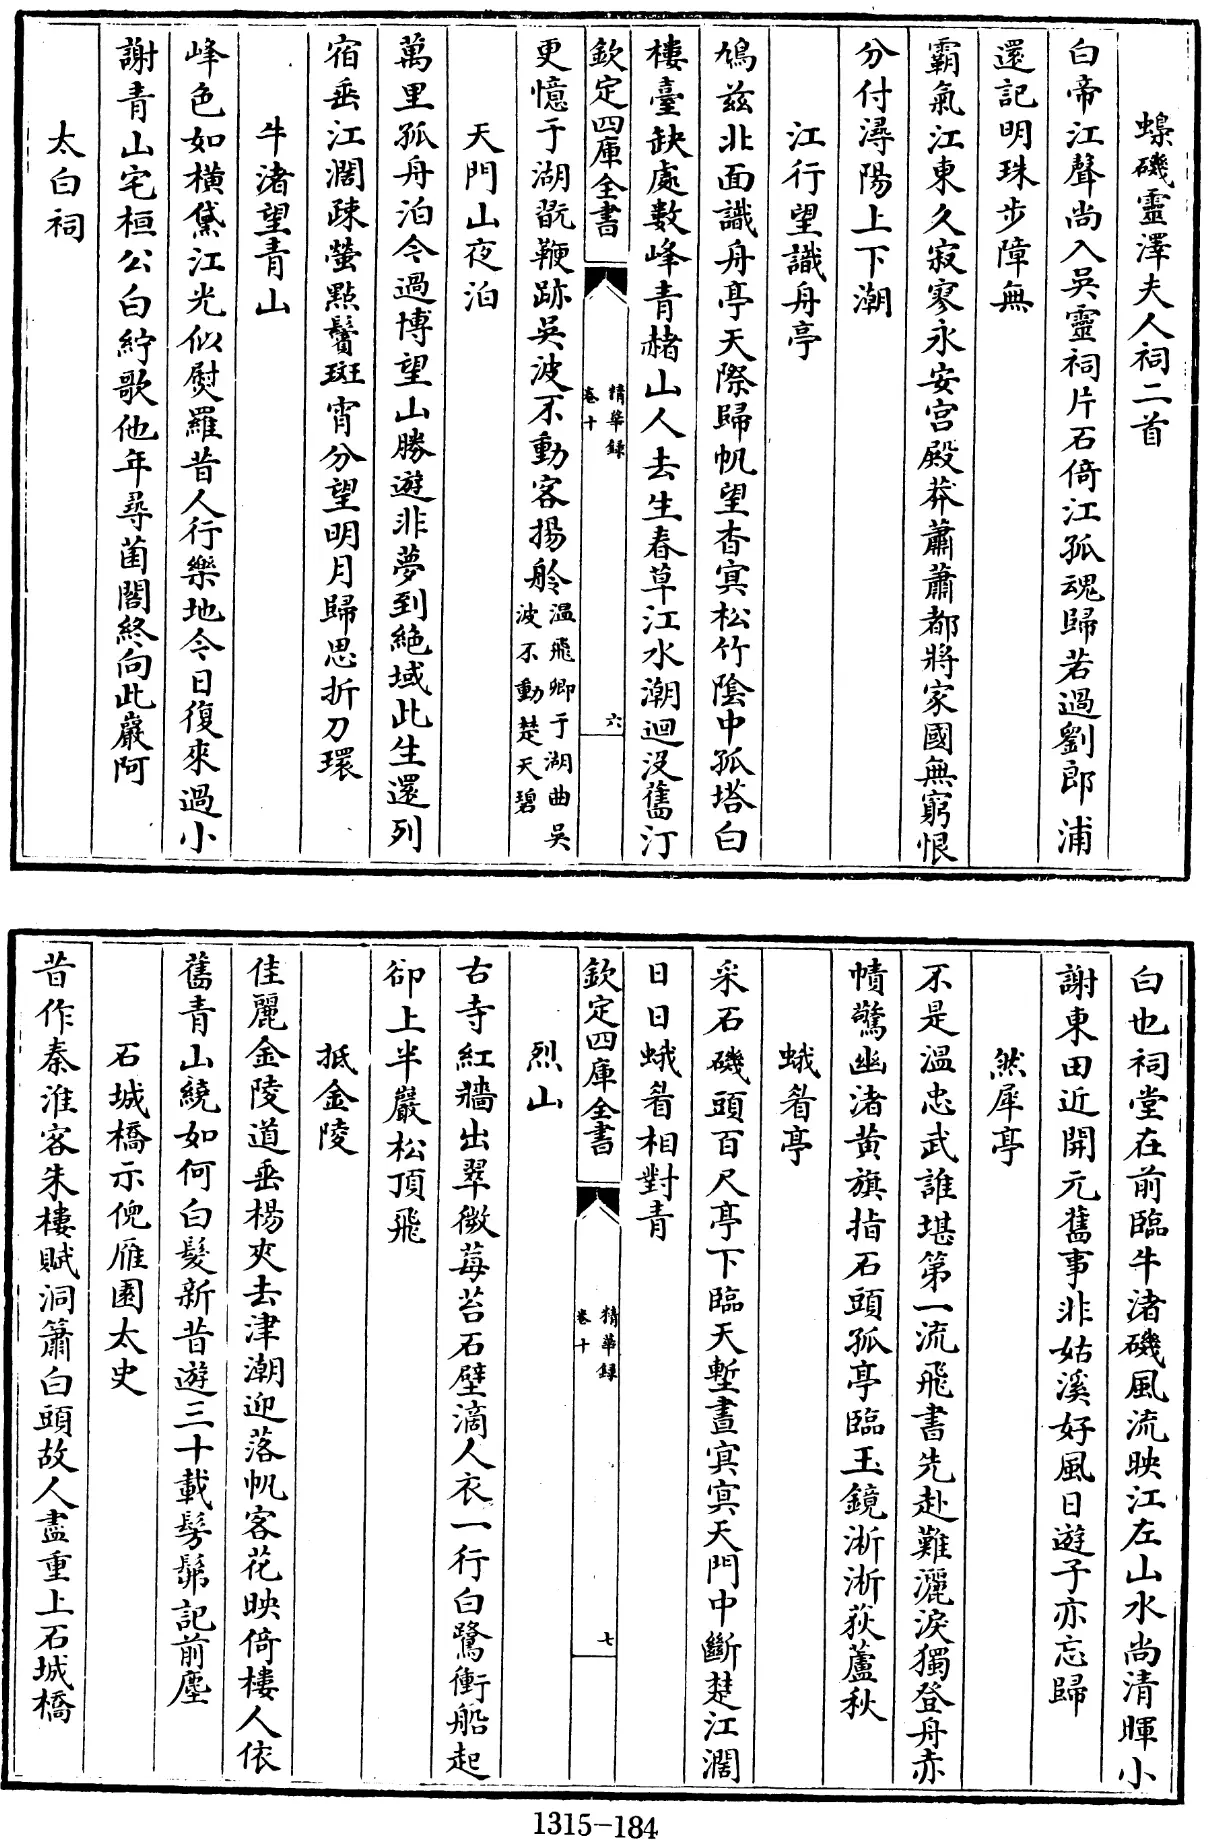 蟂磯靈澤夫人祠二首
白帝江聲尚入吳靈祠片石倚江孤魂歸若過劉郎浦
還記明珠步障無
霸氣江東久寂寥永安宫殿莽蕭蕭都將家國無窮恨
分付潯陽上下潮
江行望識舟亭
鳩兹北面識舟亭天際歸帆望杳寘松竹陰中孤塔白
樓臺缺處數峰青赭山人去生春草江水潮迴没舊汀
欽定四庫全書
精華録
卷十
六
更憶于湖翫鞭跡吳波不動客揚舲
温飛卿于湖曲吳
波不動楚天碧
天門山夜泊
萬里孤舟泊今過博望山勝遊非夢到絶域此生還列
宿垂江濶疎螢點鬢斑宵分望明月歸思折刀環
牛渚望青山
峰色如横黛江光似熨羅昔人行樂地今日復來過小
謝青山宅桓公白紵歌他年尋菌閣終向此巖阿
太白祠
白也祠堂在前臨牛渚磯風流映江左山水尚清暉小
謝東田近開元舊事非姑溪好風日遊子亦忘歸
然犀亭
不是温忠武誰堪第一流飛書先赴難灑淚獨登舟赤
幘驚幽渚黄旗指石頭孤亭臨玉鏡淅淅荻蘆秋
蛾眉亭
采石磯頭百尺亭下臨天塹晝寘寘天門中斷楚江濶
日日蛾眉相對青
欽定四庫全書
精華録
卷十
七
烈山
古寺紅牆出翠微莓苔石壁滴人衣一行白鷺衝船起
卻上半巖松頂飛
抵金陵
佳麗金陵道垂楊夾去津潮迎落帆客花映倚樓人依
舊青山繞如何白髮新昔遊三十載髣髴記前塵
石城橋示倪雁園太史
昔作秦淮客朱樓賦洞簫白頭故人盡重上石城橋
1315-184